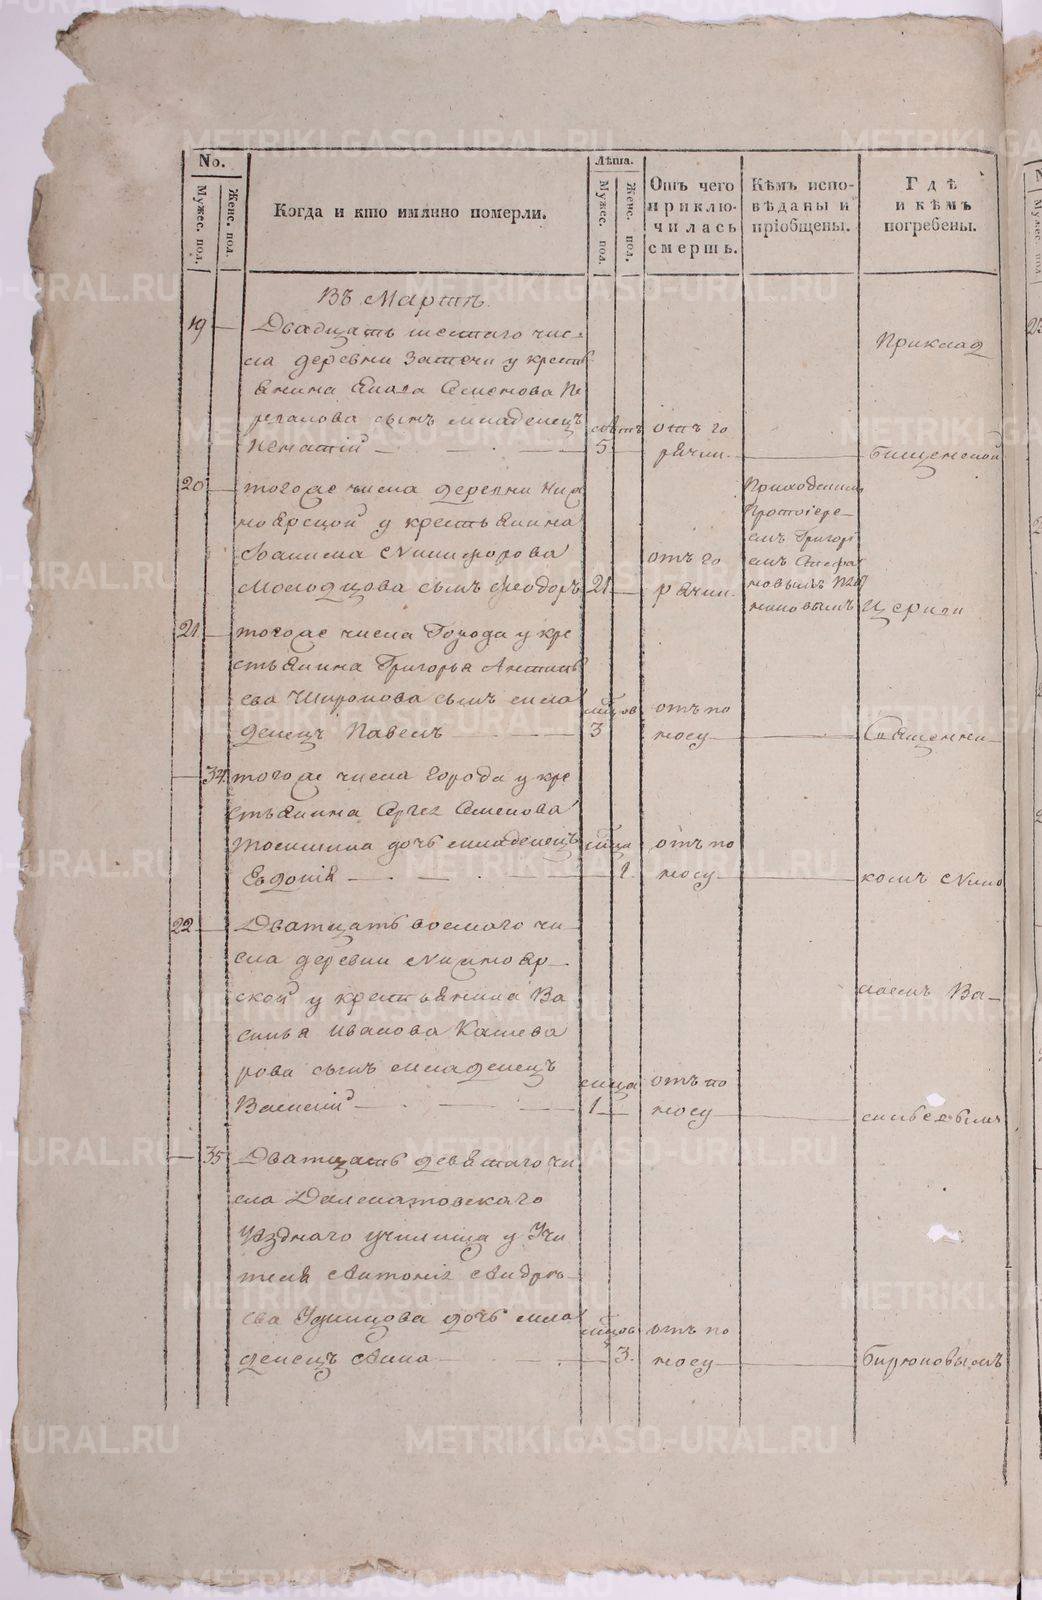 No.
Мужес. пол.
Женс. пол.
Когда и кто имянно померли.
Лѣта.
Мужес. пол.
Женс. пол.
Отъ чего
приклю-
чилась
смерть.
Кѣмъ испо-
вѣданы и
пріобщены.
Гдѣ
и кѣмъ
погребены.
Въ Мартѣ.
19
Двадцать шестаго чис-
ла деревни Затечи у кресть
янина Семенова Пе
сынъ младенецъ
лѣтъ
5
отъ го
рячки.
Приклад
бищенской
20
тогоже числа деревни Ниж
ноярской у крестьянина
Никифорова
Молодцова сынъ Феодоръ
21
отъ го
рячки.
Приходскимъ
Протоіере-
емъ Григорі
емъ Стефа
новымъ
церкви
21
тогоже числа Города у кре
стьянина Григорья Антипь
ева Широкова сынъ мла
денецъ Павелъ
мцов
3
отъ по
носу
Священни-
34
тогоже числа города у кре
стьянина Сергея Семенова
дочь младенецъ
Евдокія
мца
1.
отъ по
носу
комъ Нико
22
Дватцать восмаго чи-
сла деревни Нижнояр-
ской у крестьянина Ва
силья Иванова Кашева
рова сынъ младенецъ
Василій
мца
1
отъ по
носу
лаемъ Ва-
сильевымъ
35
Дватцать девятаго чи
сла Далматовскаго
Уѣзднаго училища у Учи
теля Антонія Андрѣ-
ева Удинцова дочь мла
денецъ Анна
мцов
3.
отъ по
носу
Бирюковымъ
METRIKI.GASO-URAL.RU